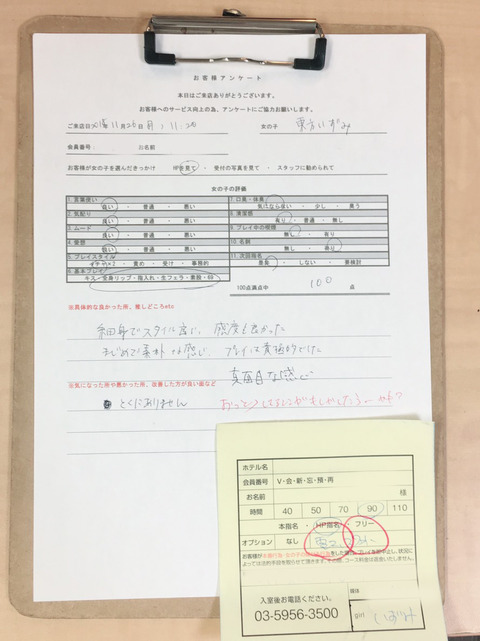 お客様アンケート
本日はご来店ありがとうございます。
お客様へのサービス向上の為、アンケートにご協力お願いします。
ご来店日 11月26日 月 , 11:20 女の子 東方いずみ
会員番号: お名前
お客様が女の子を選んだきっかけ HPを見て ・ 受付の写真を見て ・ スタッフに勧められて
女の子の評価
1. 言葉使い
良い ・ 普通 ・ 悪い
2. 気配り
良い ・ 普通 ・ 悪い
3. ムード
良い ・ 普通 ・ 悪い
4. 愛想
良い ・ 普通 ・ 悪い
5. プレイスタイル
イチャ×2 ・ 責め ・ 受け ・ 事務的
6. 基本プレイ
キス・全身リップ・指入れ・生フェラ・素股・69
7. 口臭・体臭
気にならない ・ 少し ・ 臭う
8. 清潔感
有り ・ 普通 ・ 無し
9. プレイ中の喫煙
無し ・ 有り
10. 名刺
無し ・ 有り
11. 次回指名
是非 ・ しない ・ 要検討
100点満点中 100 点
※具体的な良かった所、推しどころetc
細身でスタイル良し、感度も良かった
まじめで素朴な感じ、プレイは積極的でした
真面目な感じ
※気になった所や悪かった所、改善した方が良い面など
とくにありません
ホテル名
会員番号 V・会・新・忘・預・再
お名前 様
時間 40 50 70 90 110
本指名 ・ HP指名 ・ フリー
オプション なし
お客様が
入室後お電話ください。
03-5956-3500
girl いずみ